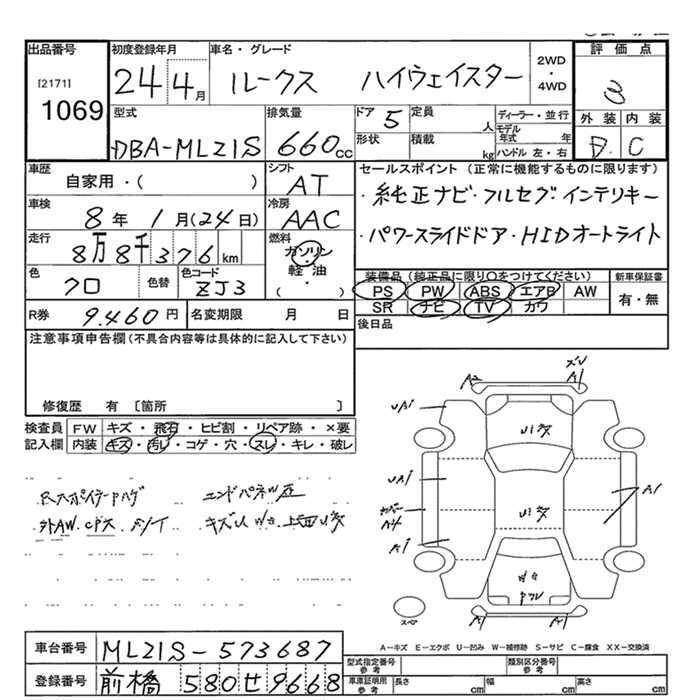 出品番号 初度登録年月 車名・グレード 2WD・4WD 評価点
[2171] 1069
24 4月 ルークス ハイウェイスター 3
型式 排気量 ドア 5 定員 人 ディーラー・並行 外装 内装
DBA-ML21S 660cc 形状 積載 kg モデル年式 年 ハンドル 左・右 D C
車歴 シフト セールスポイント (正常に機能するものに限ります)
自家用・( ) AT ・純正ナビ・フルセグ インテリキー
車検 冷房
8年 1月(24日) AAC ・パワースライドドア・HIDオートライト
走行 燃料
8万8千376km ガソリン・軽油・( )
色 色替 色コード 装備品 (純正品に限り○をつけてください) 新車保証書
クロ ZJ3 PS PW ABS エアB AW 有・無
SR ナビ TV カワ
R券 9.460円 名変期限 月 日 後日品
注意事項申告欄(不具合内容等は具体的に記入して下さい)
修復歴 有 〔箇所 〕
検査員 FW キズ・飛石・ヒビ割・リペア跡・×要
記入欄 内装 キズ・汚レ・コゲ・穴・スレ・キレ・破レ
A2 ズレ A1
UA1 Uミ多
UA1 カバー A4 Uミ多 A1
A1
Wキ
スペア A1 A1
外AW
キズUWキ 上面Uミ多
A-キズ E-エクボ U-凹み W-補修跡 S-サビ C-腐食 XX-交換済
車台番号 ML21S-573687
型式指定番号 参考 類別区分番号 参考
登録番号 前橋 580 せ 9668
車庫証明用 参考 長さ cm 幅 cm 高さ cm